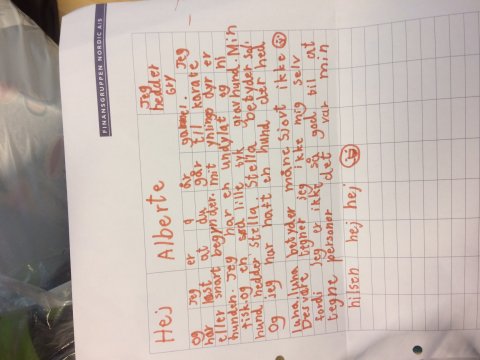 FINANSGRUPPEN NORDIC A/S
Hej Alberte
Jeg
hedder
Gry
og jeg er 9 år gammel. Jeg
har læst at du går til karate
eller snart begynder. mit ynling dyr er
hunden. Jeg har en undulat og ni
fisk. og en sød lille tysk gravhund. Min
hund hedder Stella. Stella betyder sol.
Og jeg har hatt en hund der hed
luna. luna betyder måne sjovt ikke
Desvare tegner jeg ikke mig selv
fordi jeg er ikke så god til at
tegne personer det var min
hilsen hej hej